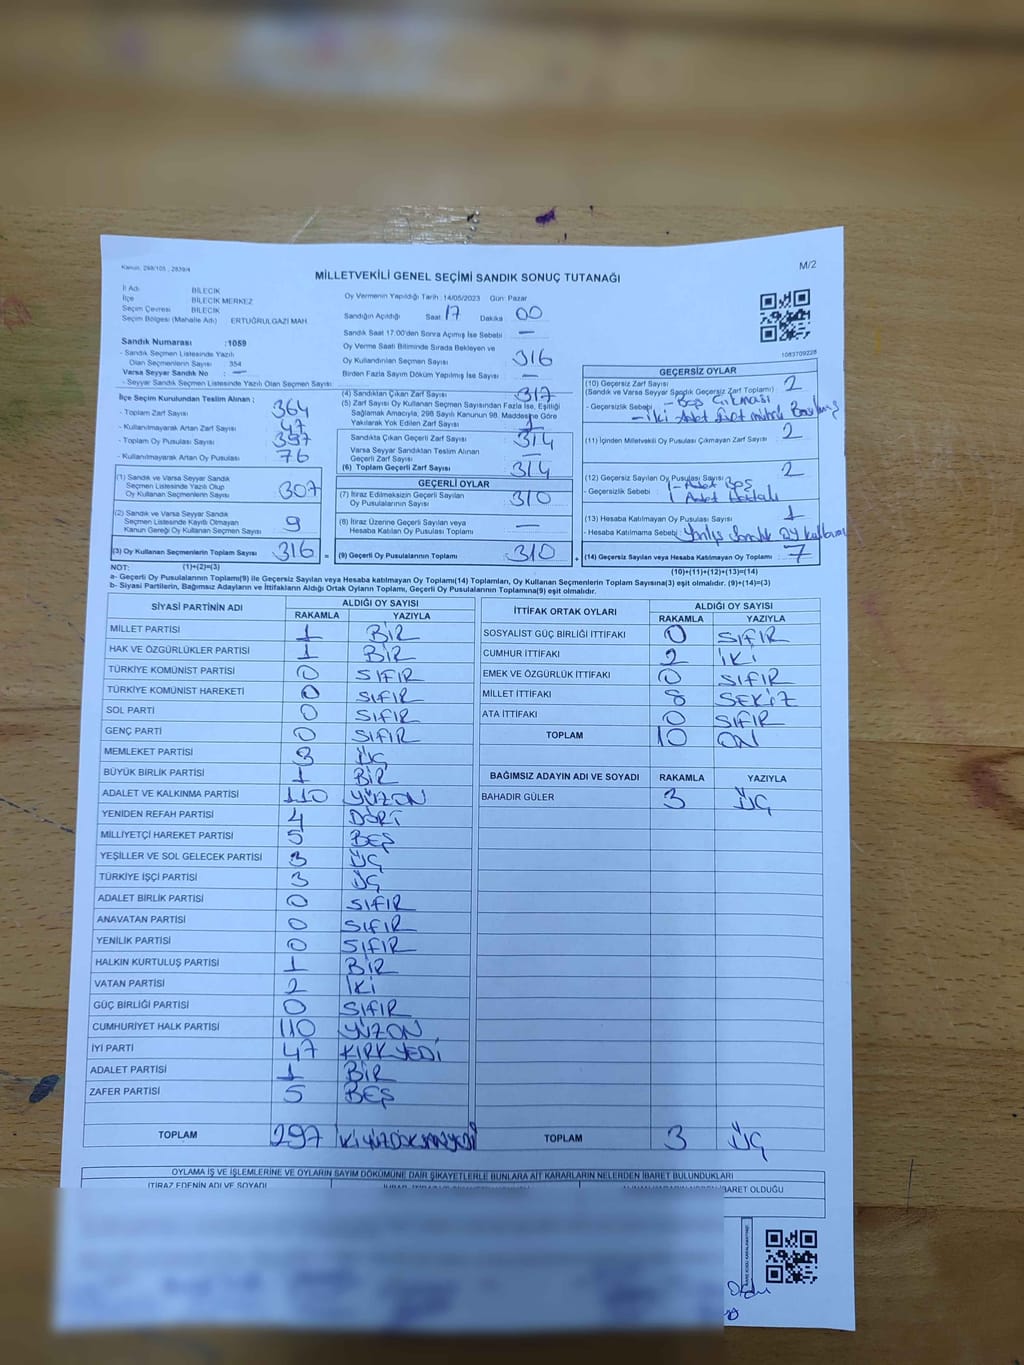 Kanun: 298/105 ; 2839/4
M/2
MİLLETVEKİLİ GENEL SEÇİMİ SANDIK SONUÇ TUTANAĞI
İl Adı : BİLECİK
İlçe : BİLECİK MERKEZ
Seçim Çevresi : BİLECİK
Seçim Bölgesi (Mahalle Adı) : ERTUĞRULGAZİ MAH.
Sandık Numarası :1059
- Sandık Seçmen Listesinde Yazılı
Olan Seçmenlerin Sayısı : 354
Varsa Seyyar Sandık No : —
- Seyyar Sandık Seçmen Listesinde Yazılı Olan Seçmen Sayısı :
Oy Vermenin Yapıldığı Tarih : 14/05/2023 Gün: Pazar
Sandığın Açıldığı Saat 17 Dakika 00
Sandık Saat 17:00'den Sonra Açımış İse Sebebi : —
Oy Verme Saati Bitiminde Sırada Bekleyen ve
Oy Kullandırılan Seçmen Sayısı : 316
Birden Fazla Sayım Döküm Yapılmış İse Sayısı : —
1083709228
İlçe Seçim Kurulundan Teslim Alınan ;
- Toplam Zarf Sayısı : 364
- Kullanılmayarak Artan Zarf Sayısı : 47
- Toplam Oy Pusulası Sayısı : 397
- Kullanılmayarak Artan Oy Pusulası : 76
(1) Sandık ve Varsa Seyyar Sandık
Seçmen Listesinde Yazılı Olup
Oy Kullanan Seçmenlerin Sayısı : 307
(2) Sandık ve Varsa Seyyar Sandık
Seçmen Listesinde Kayıtlı Olmayan
Kanun Gereği Oy Kullanan Seçmen Sayısı : 9
(3) Oy Kullanan Seçmenlerin Toplam Sayısı : 316
(1)+(2)=(3)
(4) Sandıktan Çıkan Zarf Sayısı : 317
(5) Zarf Sayısı Oy Kullanan Seçmen Sayısından Fazla İse, Eşitliği
Sağlamak Amacıyla, 298 Sayılı Kanunun 98. Maddesine Göre
Yakılarak Yok Edilen Zarf Sayısı : 1
Sandıkta Çıkan Geçerli Zarf Sayısı : 314
Varsa Seyyar Sandıktan Teslim Alınan
Geçerli Zarf Sayısı : —
(6) Toplam Geçerli Zarf Sayısı : 314
GEÇERLİ OYLAR
(7) İtiraz Edilmeksizin Geçerli Sayılan
Oy Pusulalarının Sayısı : 310
(8) İtiraz Üzerine Geçerli Sayılan veya
Hesaba Katılan Oy Pusulası Toplamı : —
= (9) Geçerli Oy Pusulalarının Toplamı : 310 +
GEÇERSİZ OYLAR
(10) Geçersiz Zarf Sayısı
(Sandık ve Varsa Seyyar Sandık Geçersiz Zarf Toplamı) : 2
- Geçersizlik Sebebi : - Boş Çıkması
- İki Adet
(11) İçinden Milletvekili Oy Pusulası Çıkmayan Zarf Sayısı : 2
(12) Geçersiz Sayılan Oy Pusulası Sayısı : 2
- Geçersizlik Sebebi : 1 - Adet Boş
1 Adet Hatalı
(13) Hesaba Katılmayan Oy Pusulası Sayısı : 1
- Hesaba Katılmama Sebebi : Yanlış Sandık oy kullanımı
(14) Geçersiz Sayılan veya Hesaba Katılmayan Oy Toplamı : 7
(10)+(11)+(12)+(13)=(14)
NOT:
a- Geçerli Oy Pusulalarının Toplamı(9) ile Geçersiz Sayılan veya Hesaba katılmayan Oy Toplamı(14) Toplamları, Oy Kullanan Seçmenlerin Toplam Sayısına(3) eşit olmalıdır. (9)+(14)=(3)
b- Siyasi Partilerin, Bağımsız Adayların ve İttifakların Aldığı Ortak Oyların Toplamı, Geçerli Oy Pusulalarının Toplamına(9) eşit olmalıdır.
SİYASİ PARTİNİN ADI ALDIĞI OY SAYISI
RAKAMLA YAZIYLA
MİLLET PARTİSİ 1 BİR
HAK VE ÖZGÜRLÜKLER PARTİSİ 1 BİR
TÜRKİYE KOMÜNİST PARTİSİ 0 SIFIR
TÜRKİYE KOMÜNİST HAREKETİ 0 SIFIR
SOL PARTİ 0 SIFIR
GENÇ PARTİ 0 SIFIR
MEMLEKET PARTİSİ 3 ÜÇ
BÜYÜK BİRLİK PARTİSİ 1 BİR
ADALET VE KALKINMA PARTİSİ 110 YÜZON
YENİDEN REFAH PARTİSİ 4 DÖRT
MİLLİYETÇİ HAREKET PARTİSİ 5 BEŞ
YEŞİLLER VE SOL GELECEK PARTİSİ 3 ÜÇ
TÜRKİYE İŞÇİ PARTİSİ 3 ÜÇ
ADALET BİRLİK PARTİSİ 0 SIFIR
ANAVATAN PARTİSİ 0 SIFIR
YENİLİK PARTİSİ 0 SIFIR
HALKIN KURTULUŞ PARTİSİ 1 BİR
VATAN PARTİSİ 2 İKİ
GÜÇ BİRLİĞİ PARTİSİ 0 SIFIR
CUMHURİYET HALK PARTİSİ 110 YÜZON
İYİ PARTİ 47 KIRKYEDİ
ADALET PARTİSİ 1 BİR
ZAFER PARTİSİ 5 BEŞ
TOPLAM 297 İKİYÜZDOKSANYEDİ
İTTİFAK ORTAK OYLARI ALDIĞI OY SAYISI
RAKAMLA YAZIYLA
SOSYALİST GÜÇ BİRLİĞİ İTTİFAKI 0 SIFIR
CUMHUR İTTİFAKI 2 İKİ
EMEK VE ÖZGÜRLÜK İTTİFAKI 0 SIFIR
MİLLET İTTİFAKI 8 SEKİZ
ATA İTTİFAKI 0 SIFIR
TOPLAM 10 ON
BAĞIMSIZ ADAYIN ADI VE SOYADI RAKAMLA YAZIYLA
BAHADIR GÜLER 3 ÜÇ
TOPLAM 3 ÜÇ
OYLAMA İŞ VE İŞLEMLERİNE VE OYLARIN SAYIM DÖKÜMÜNE DAİR ŞİKAYETLERLE BUNLARA AİT KARARLARIN NELERDEN İBARET BULUNDUKLARI
İTİRAZ EDENİN ADI VE SOYADI
İBARET OLDUĞU